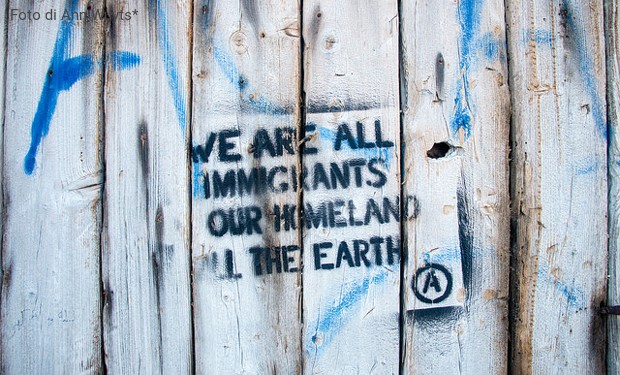 Foto di Ann Wuyts*
WE ARE ALL
IMMIGRANTS
OUR HOMELAND
ALL THE EARTH
A